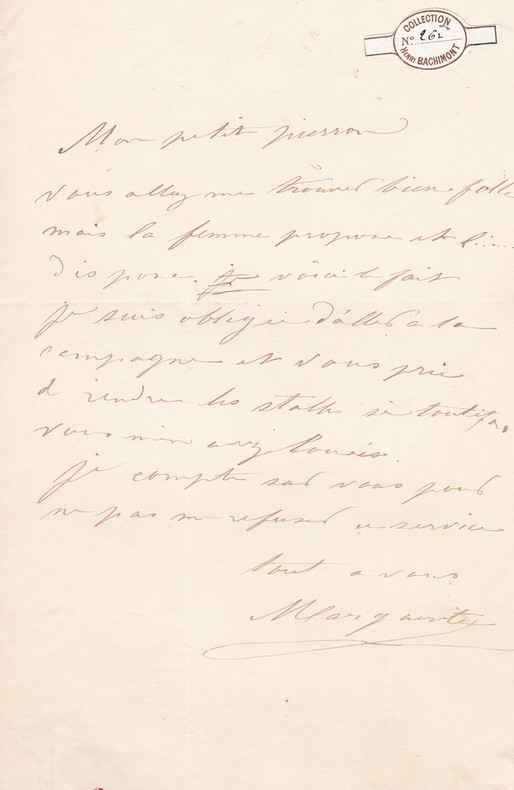 COLLECTION
No. 262
HENRI BACHIMONT
Mon petit pierron
vous allez me trouver bien folle
mais la femme propose et l.....
dispose. je voici le fait
je suis obligée d'aller a la
campagne et vous prie
de rendre les stalles si toutefois
vous m'en avez loués.
je compte sur vous pour
ne pas me refuser ce service
tout a vous
Marguerite